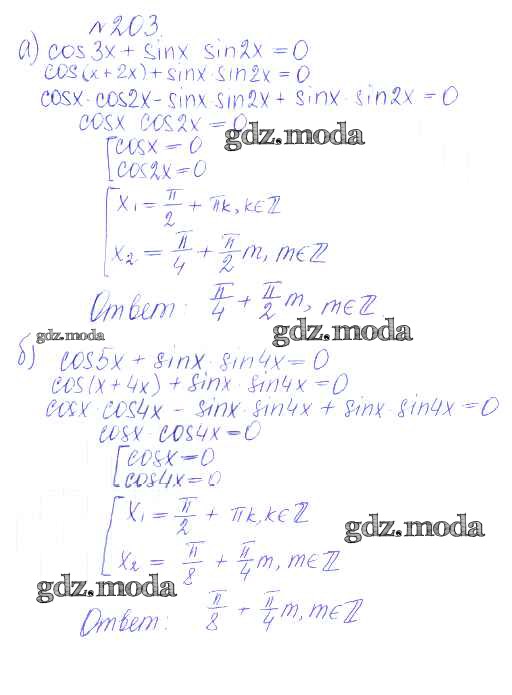 №203.
а) cos3x + sinx sin2x = 0
cos(x + 2x) + sinx · sin2x = 0
cosx · cos2x - sinx sin2x + sinx · sin2x = 0
cosx cos2x = 0
gdz.moda
[cosx = 0
cos2x = 0
[x₁ = π/2 + πk, k∈ℤ
x₂ = π/4 + π/2 m, m∈ℤ
Ответ: π/4 + π/2 m, m∈ℤ
gdz.moda
gdz.moda
б) cos5x + sinx · sin4x = 0
cos(x + 4x) + sinx · sin4x = 0
cosx · cos4x - sinx · sin4x + sinx · sin4x = 0
cosx · cos4x = 0
[cosx = 0
cos4x = 0
[x₁ = π/2 + πk, k∈ℤ
gdz.moda
x₂ = π/8 + π/4 m, m∈ℤ
gdz.moda
Ответ: π/8 + π/4 m, m∈ℤ